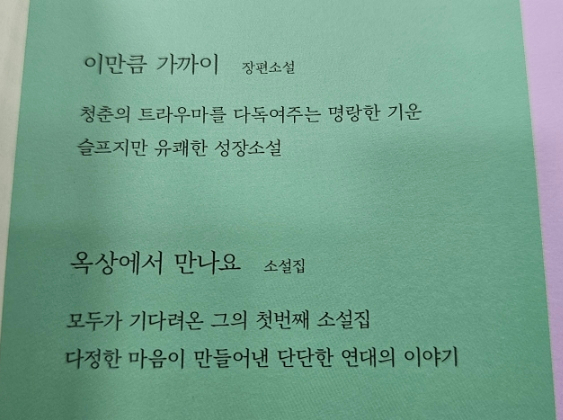 이만큼 가까이 장편소설
청춘의 트라우마를 다독여주는 명랑한 기운
슬프지만 유쾌한 성장소설
옥상에서 만나요 소설집
모두가 기다려온 그의 첫번째 소설집
다정한 마음이 만들어낸 단단한 연대의 이야기